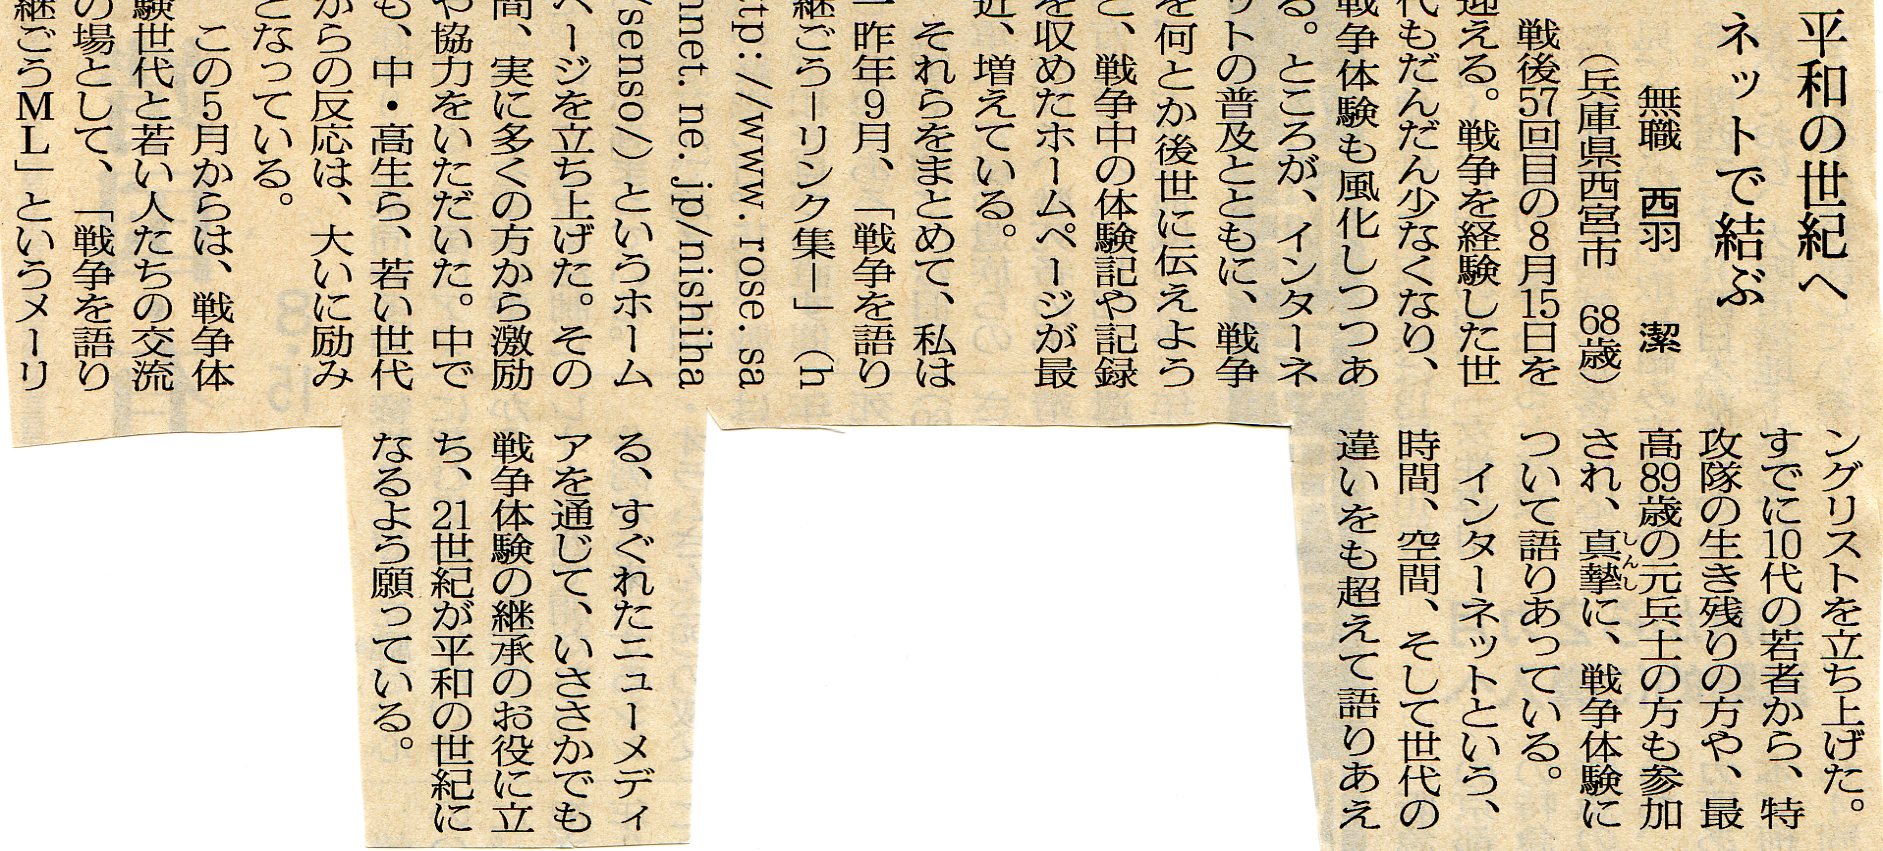 平和の世紀へ
ネットで結ぶ
無職 西羽 潔
(兵庫県西宮市 68歳)
戦後57回目の8月15日を
迎える。戦争を経験した世
代もだんだん少なくなり、
戦争体験も風化しつつあ
る。ところが、インターネ
ットの普及とともに、戦争
を何とか後世に伝えよう
と、戦争中の体験記や記録
を収めたホームページが最
近、増えている。
それらをまとめて、私は
一昨年9月、「戦争を語り
継ごう－リンク集－」(h
ttp://www.rose.sa
nnet.ne.jp/nishiha
/senso/)というホーム
ページを立ち上げた。その
間、実に多くの方から激励
や協力をいただいた。中で
も、中・高生ら、若い世代
からの反応は、大いに励み
となっている。
この5月からは、戦争体
験世代と若い人たちの交流
の場として、「戦争を語り
継ごうML」というメーリ
ングリストを立ち上げた。
すでに10代の若者から、特
攻隊の生き残りの方や、最
高89歳の元兵士の方も参加
され、真摯しんしに、戦争体験に
ついて語りあっている。
インターネットという、
時間、空間、そして世代の
違いをも超えて語りあえ
る、すぐれたニューメディ
アを通じて、いささかでも
戦争体験の継承のお役に立
ち、21世紀が平和の世紀に
なるよう願っている。